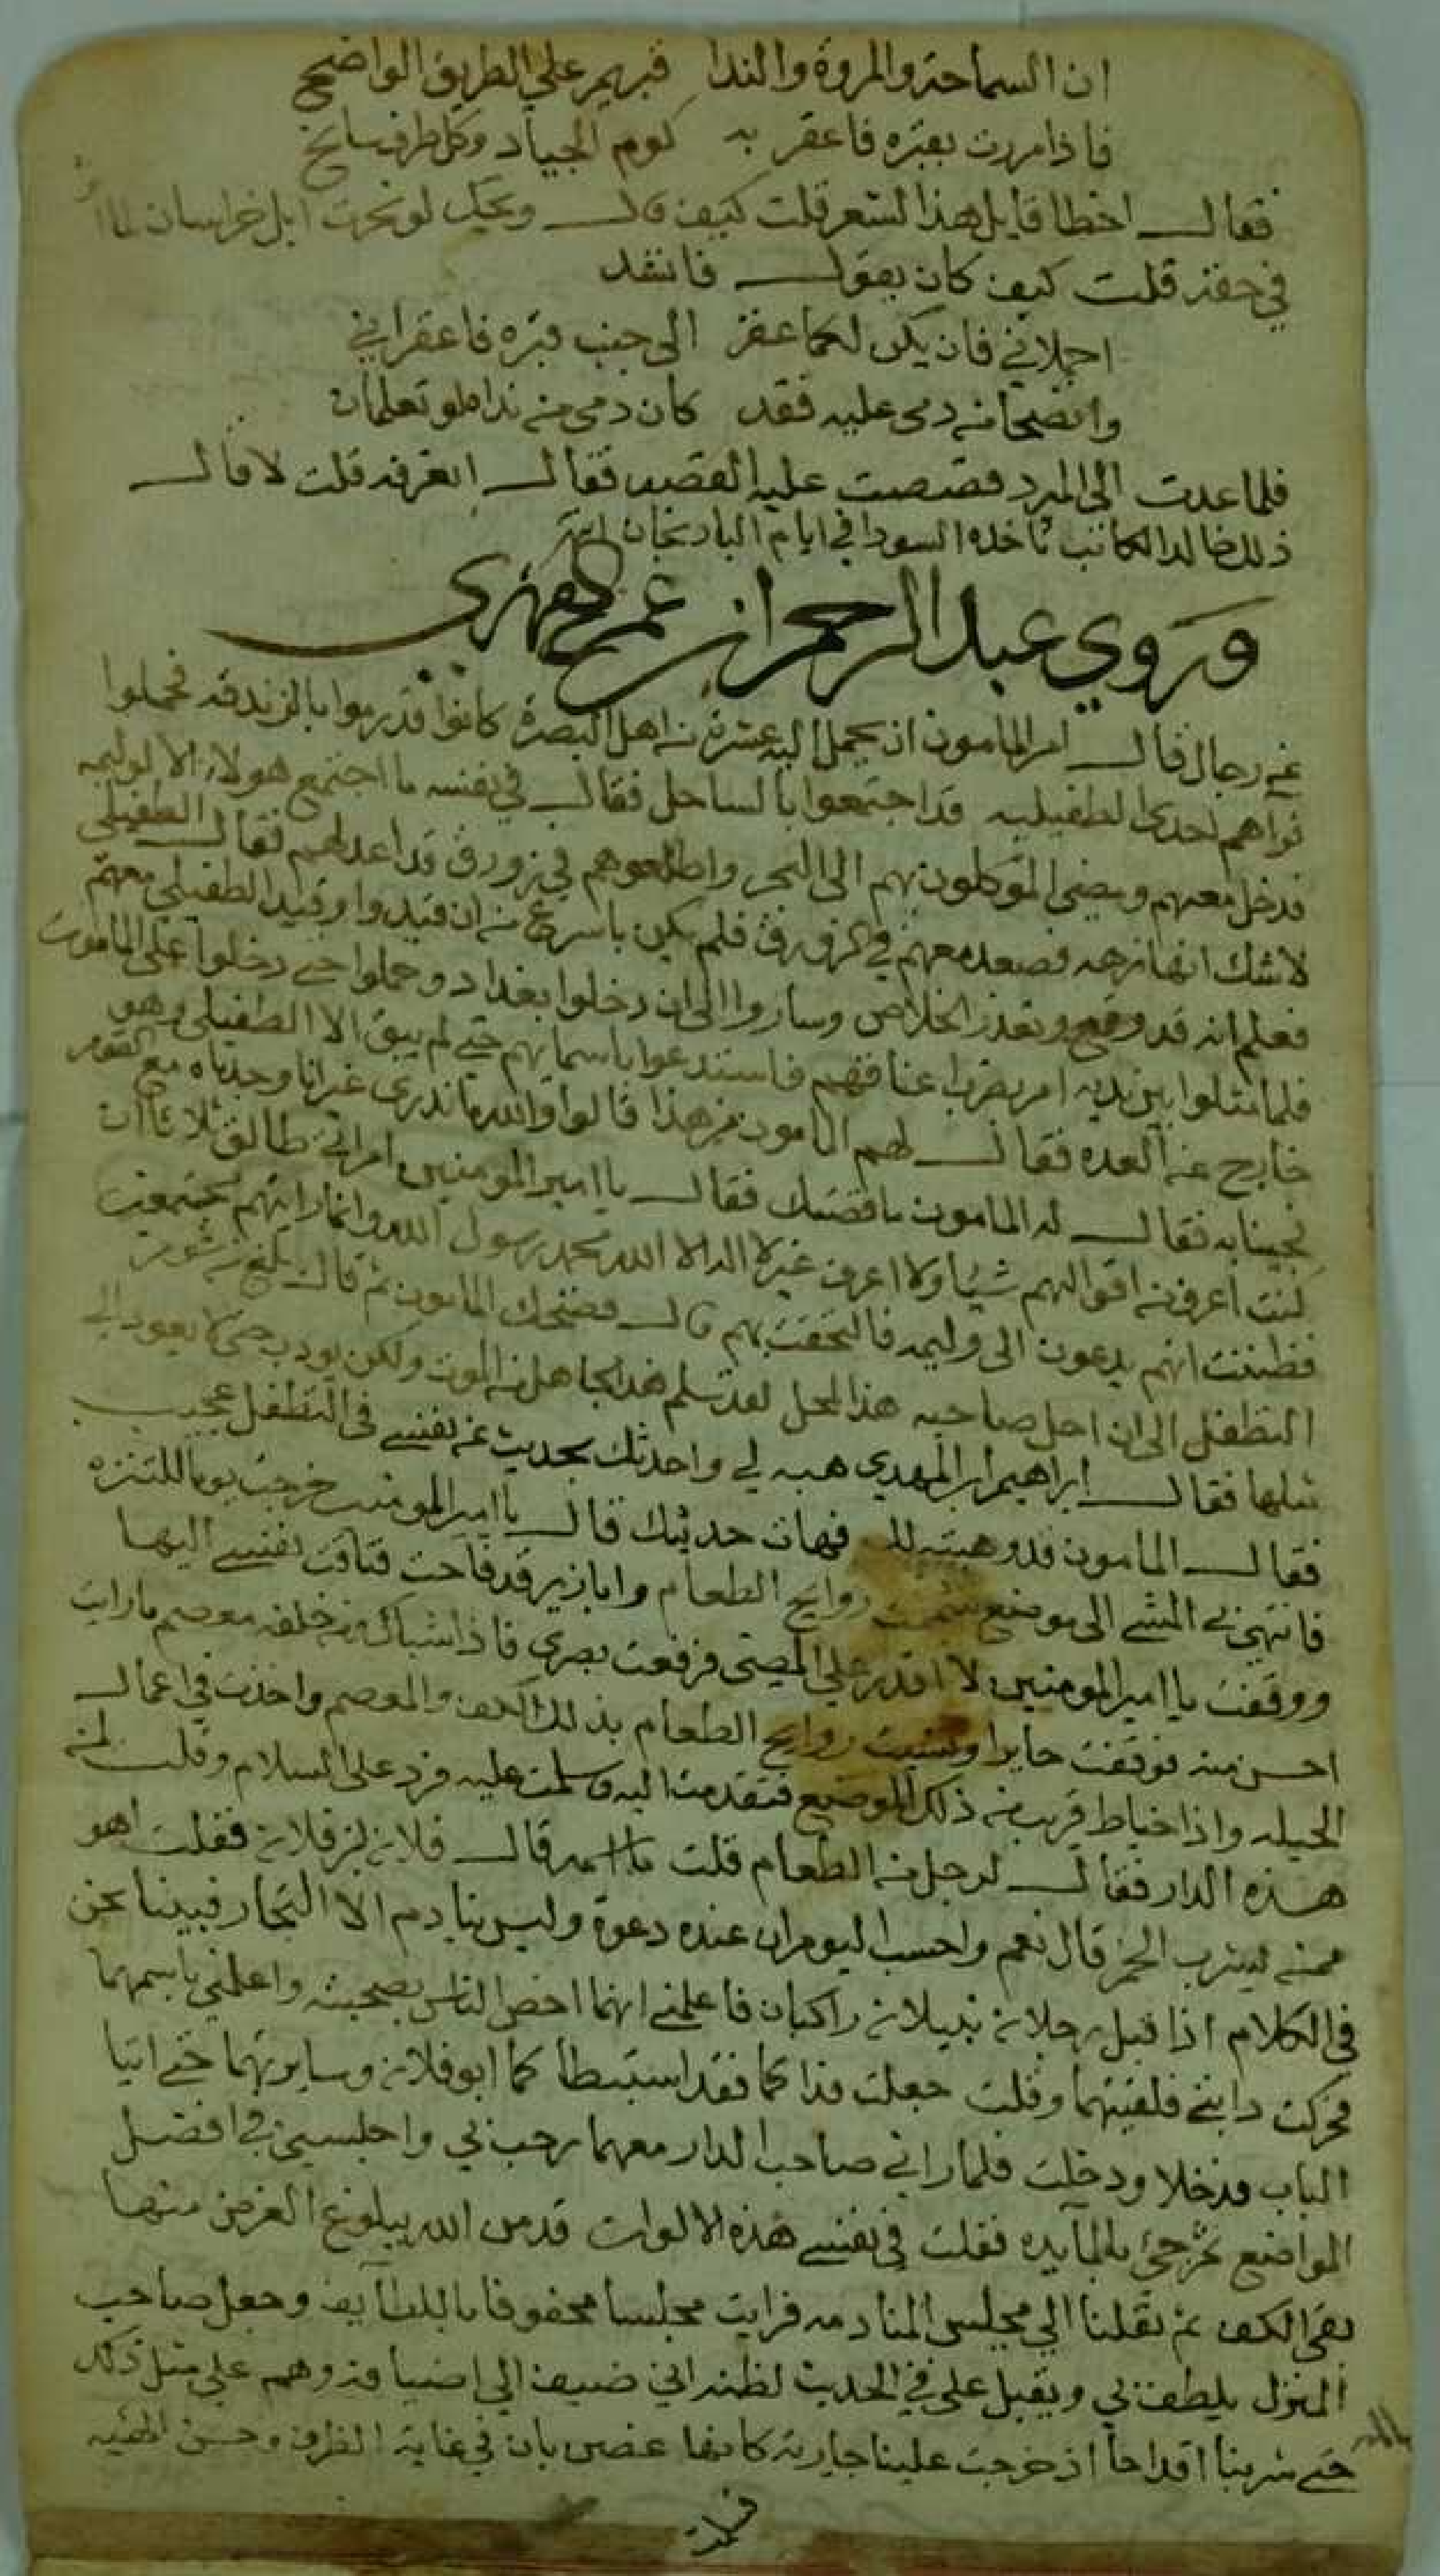 ان السماحة والمروة والندا قبرهم علي الطريق الواضح
فاذا مررت بقبره فاعقر به كوم الجياد وكل طرف سابح
فقالـــ اخطا قايل هذا الشعر قلت كيف قالـــ ويحك لو نحرت ابل خراسان لما
في حقه قلت كيف كان يقولـــ فانشد
احملاني فان يكن لكما عقر الى جنب قبره فاعقراني
وانضحا من دمي عليه فقد كان دمي من نداه لو تعلمان
فلما عدت الى المبرد قصصت عليه القصه فقالـــ اتعرفه قلت لا قالـــ
ذلك خالد الكاتب تاخذه السودا في ايام الباذنجان انتهى
وروي عبد الرحمان عمر الفهري
عن رجال قالـــ امر المامون ان يحمل اليه عشرة من اهل البصرة كانوا قد رموا بالزندقه فحملوا
فراهم احدى الطفيليه قد اجتمعوا بالساحل فقالـــ في نفسه ما اجتمع هولاء الا لوليمه
فدخل معهم ومضى الموكلون بهم الى البحر واطلعوهم في زورق قد اعد لهم فقالـــ الطفيلي
لا شك انها نزهه فصعد معهم في الزورق فلم يكن باسرع من ان قيدوا وقيد الطفيلي معهم
فعلم انه قد وقع وتعذر الخلاص وساروا الى ان دخلوا بغداد وحملوا حتي دخلوا على المامون
فلما مثلوا بين يديه امر بضرب اعناقهم فاستدعوا باسمايهم حتي لم يبق الا الطفيلي وهو
خارج عن العده فقالـــ لهم المامون من هذا قالوا والله ما ندري غير انا وجدناه مع القوم
فجينا به فقالـــ له المامون ما قصتك فقالـــ يا امير المومنين امراتي طالق ثلاثا ان
كنت اعرف من اقوالهم شيا ولا اعرف غير لا اله الا الله محمد رسول الله وانما رايتهم مجتمعين
فظننت انهم يدعون الى وليمه فالتحقت بهم قالـــ فضحك المامون ثم قال بلغ من شوم
التطفل الى ان احل صاحبه هذا المحل لقد سلم هذا الجاهل من الموت ولكن يودب حتى لا يعود الى
مثلها فقالـــ ابراهيم ابن المهدي هبه لي واحدثك بحديث عن نفسي في التطفل عجيب
فقالـــ المامون قد وهبته لك فهات حديثك قالـــ يا امير المومنين خرجت يوما للتنزه
فانتهى بي المشي الى موضع شممت روايح الطعام وابازير قد فاحت فتاقت نفسي اليها
ووقفت يا امير المومنين لا اقدر علي المضى فرفعت بصري فاذا شباك ومن خلفه معصم ما رايت
احسن منه فوقفت حايرا ونسيت روايح الطعام بذلك الكف والمعصم واخذت في اعمالـــ
الحيله واذا خياط قريب من ذلك الموضع فتقدمت اليه وسلمت عليه فرد علي السلام وقلت لمن
هذه الدار فقالـــ لرجل من الطعام قلت ما اسمه قالـــ فلان بن فلان فقلت اهو
ممن يشرب الخمر قال نعم واحسب اليوم ان عنده دعوة وليس ينادم الا التجار فبينا نحن
في الكلام اذ اقبل رجلان نبيلان راكبان فاعلمني انهما اخص الناس بصحبته واعلمني باسمهما
فحركت دابتي فلقيتهما وقلت جعلت فداكما فقد استبطاكما ابو فلان وسايرتهما حتي اتيا
الباب فدخلا ودخلت فلما راني صاحب الدار معهما رحب بي واجلسني في افضل
المواضع ثم جئ بالمايده فقلت في نفسي هذه الالوان قد من الله ببلوغ الغرض منها
بقي الكف ثم نقلنا الي مجلس المنادمه فرايت مجلسا محفوفا باللطايف وجعل صاحب
المنزل يلطف بي ويقبل علي في الحديث لظنه اني ضيف الى اضيافه وهم علي مثل ذلك
حتي شربنا اقداحا اذ خرجت علينا جارية كانها غصن بان في غاية الظرف وحسن الهيئه